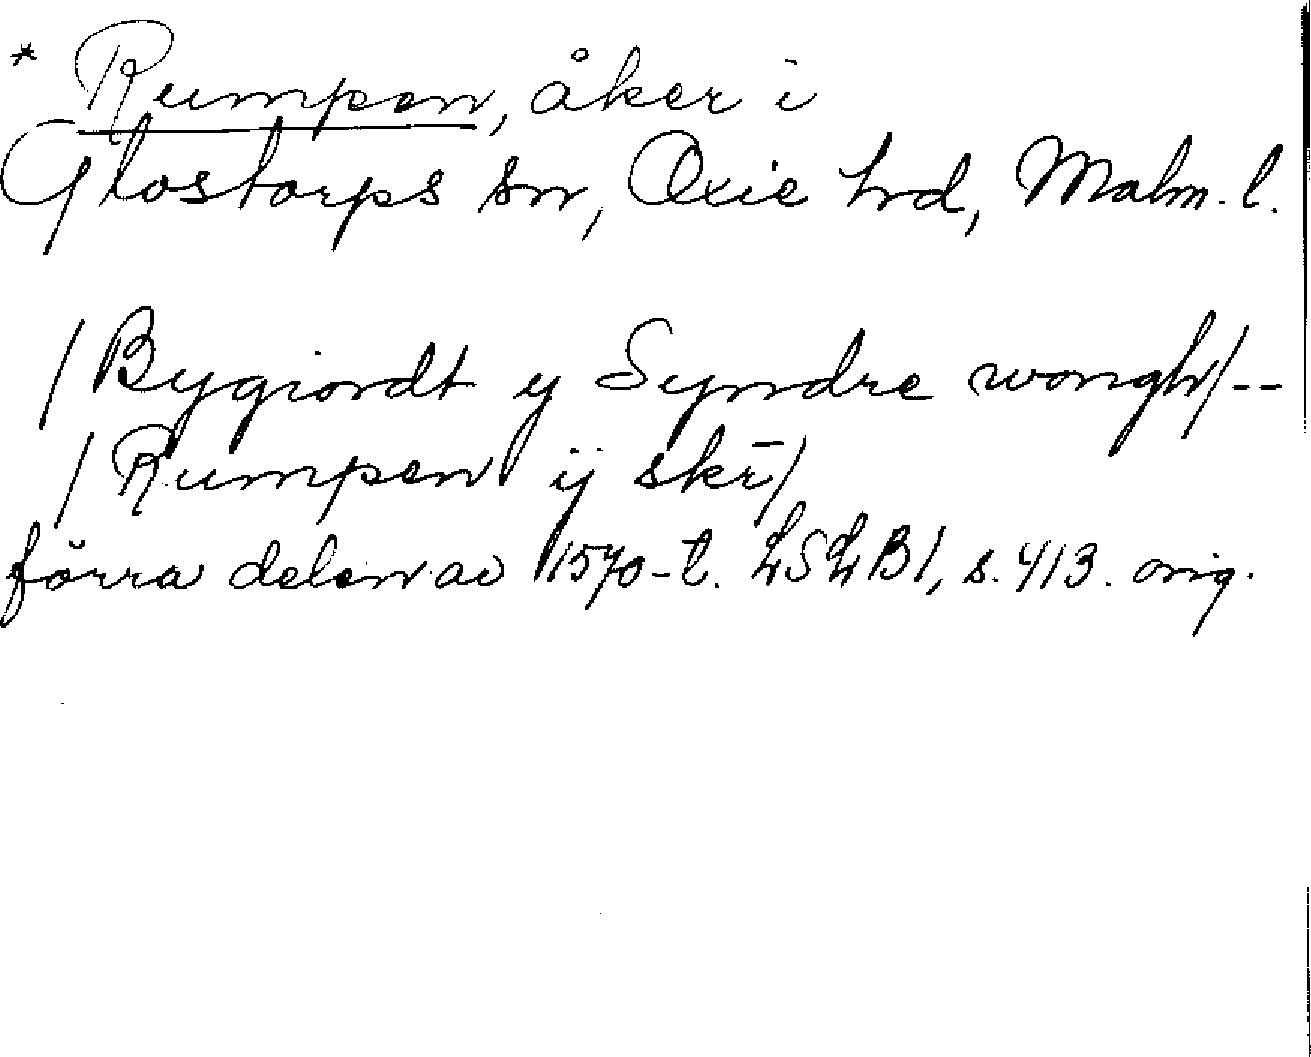 * Rumpen, åker i
Glostorps sn, Oxie hrd, Malm. l.
/Bygiordt y Syndre wongh/--
/Rumpen ij skr̄/
förra delen av 1570-t. LSLB1, s. 413. orig.